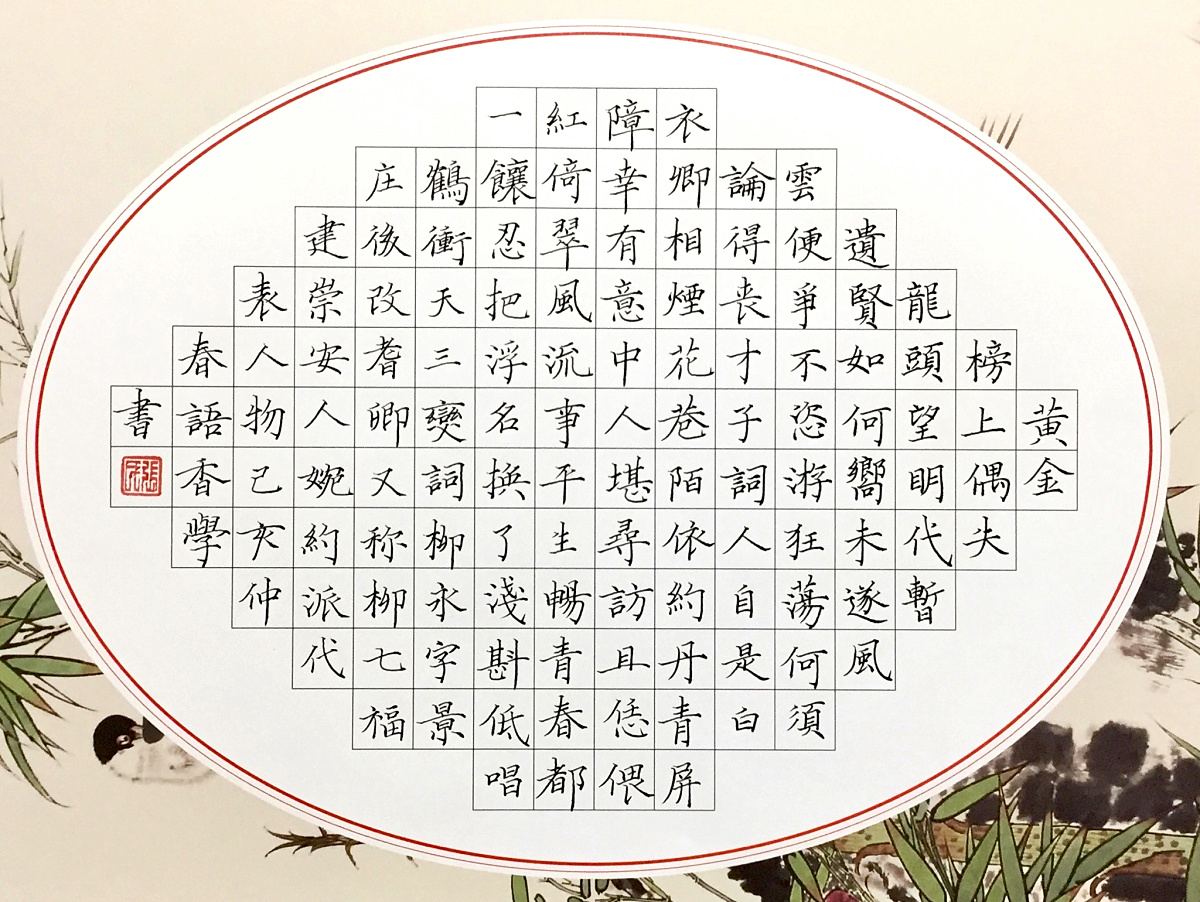 黄金
榜上偶失
龍頭望明代暫
遺賢如何嚮未遂風
雲便爭不恣游狂蕩何須
論得喪才子詞人自是白
衣卿相煙花巷陌依約丹青屏
障幸有意中人堪尋訪且恁偎
紅倚翠風流事平生暢青春都
一饟忍把浮名換了淺斟低唱
鶴衝天三變詞柳永字景
庄後改耆卿又称柳七福
建崇安人婉約派代
表人物己亥仲
春語香學
書